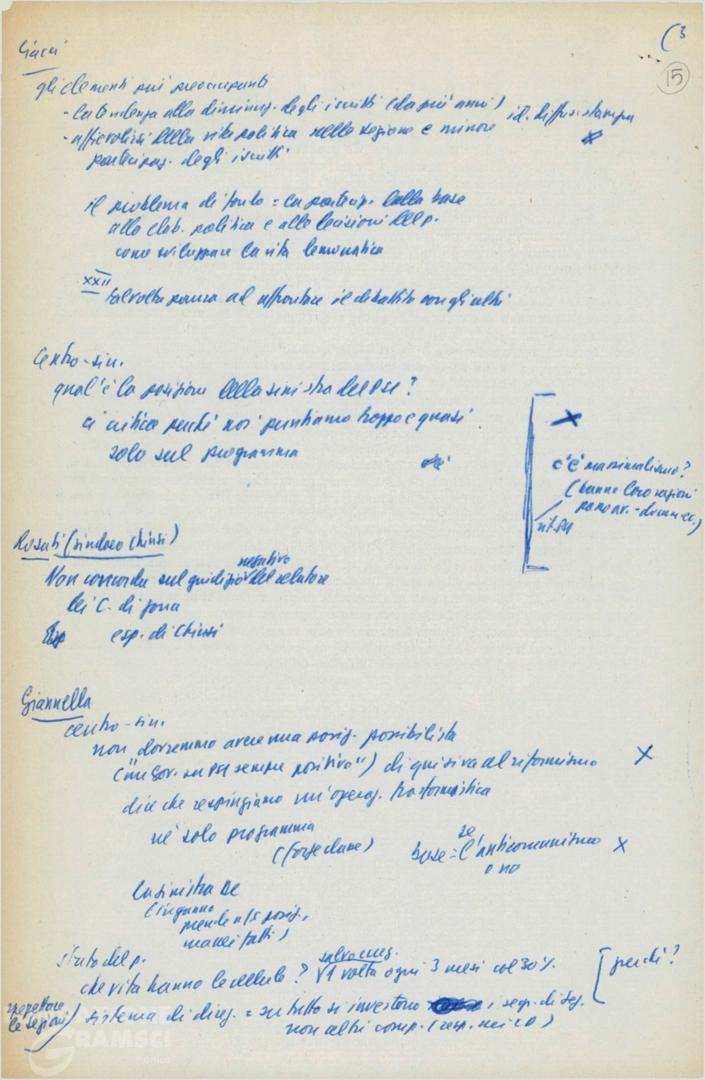 (3
15
Ciacci
gli elementi più preoccupanti
- la tendenza alla diminuz. degli iscritti (da più anni) id. diffus. stampa
- affievolirsi della vita politica nelle sezioni e minore
partecipaz. degli iscritti
il problema di fondo = la partecip. della base
alla elab. politica e alle decisioni del p.
come sviluppare la vita democratica
XXII
talvolta paura ad affrontare il dibattito con gli altri
Centro-sin.
qual'è la posizione della sinistra del PSI?
ci critica perché noi puntiamo troppo e quasi
solo sul programma
c'è massimalismo?
(hanno loro ragioni
Rosati (sindaco Chiusi)
Non concorda sul giudizio negativo del relatore
dei C. di zona
esp. di Chiusi
Giannella
centro-sin.
non dovremmo avere una posiz. possibilista
("un gov. su PSI sempre positivo") di qui si va al riformismo X
dire che respingiamo un'operaz. trasformistica
né solo programma
(forze classe)
base = se l'anticomunismo X
o no
La sinistra DC
(inganno
prende ns posiz.,
ma nei fatti)
stato del p.
che vita hanno le cellule? 1 volta ogni 3 mesi col 30%. [perché?
rispettare
le sezioni) sistema di direz. = su tutto si investono i segr. di sez.
non altri comp. (resp. nei CD)
GRAMSCI